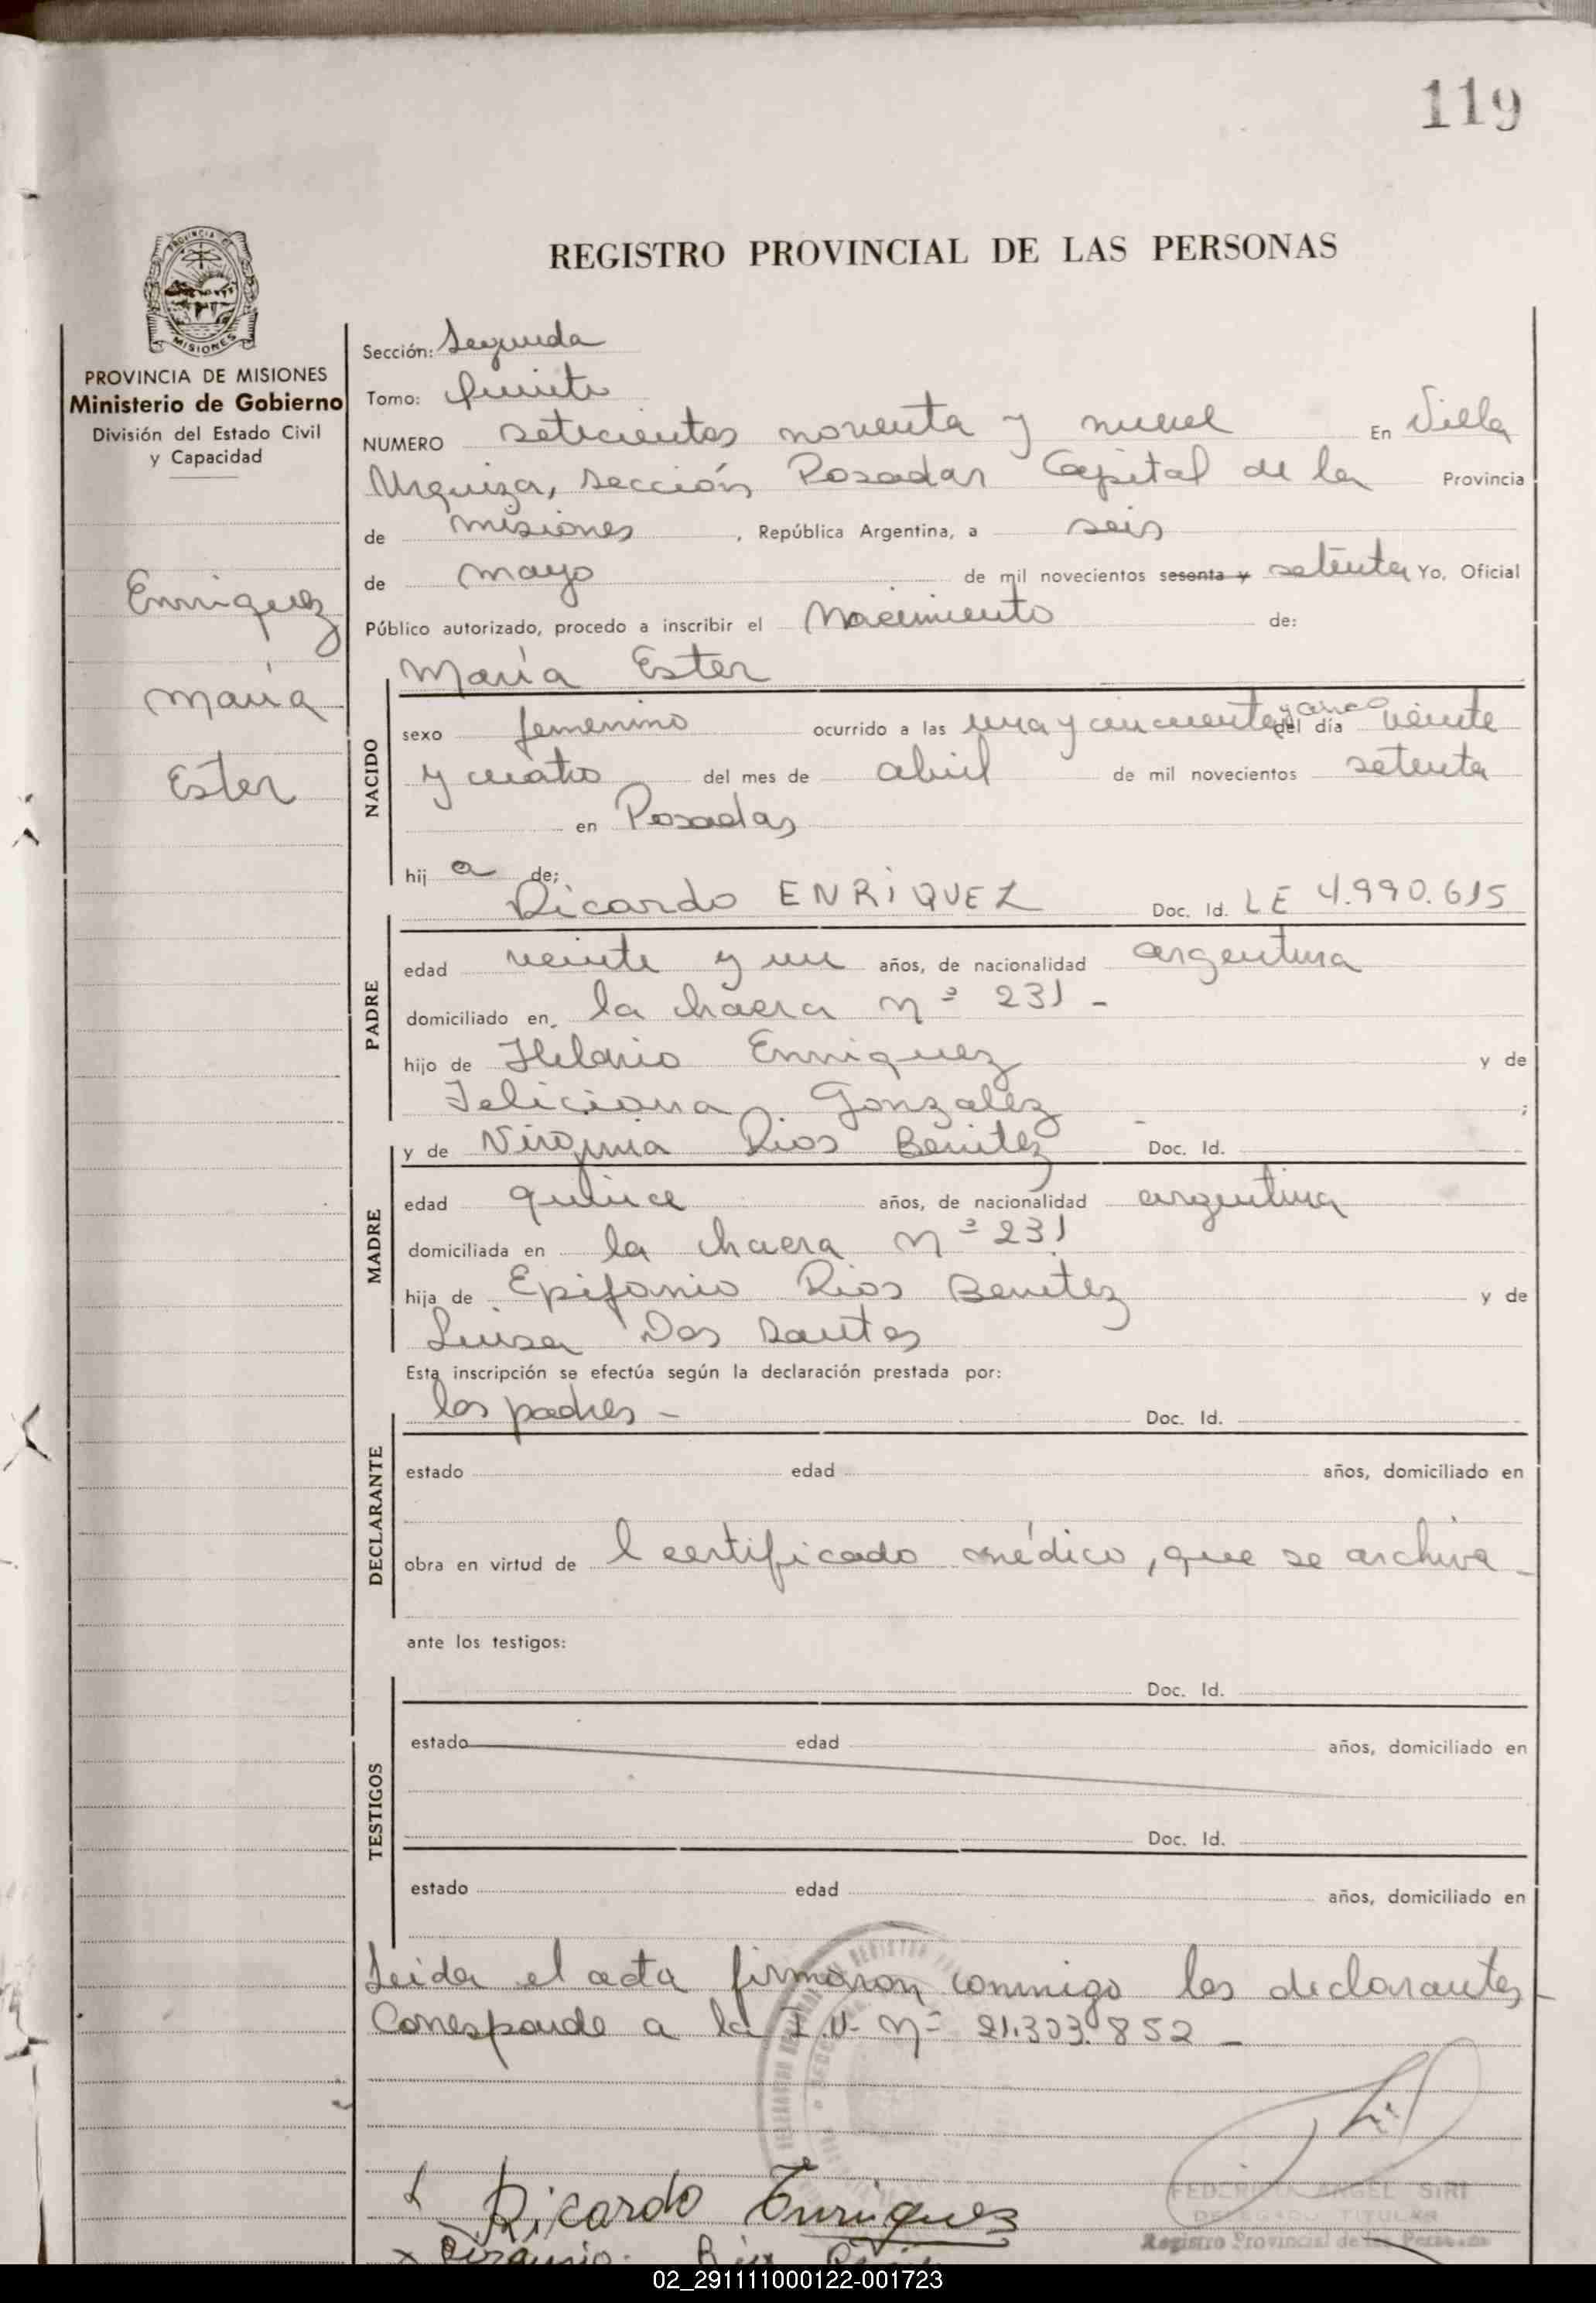 119
REGISTRO PROVINCIAL DE LAS PERSONAS
PROVINCIA DE
MISIONES
PROVINCIA DE MISIONES
Ministerio de Gobierno
División del Estado Civil
y Capacidad
Enriquez
María
Ester
Sección: Segunda
Tomo: Quinto
NUMERO setecientos noventa y nueve En Villa
Urquiza, sección Posadas Capital de la Provincia
de misiones , República Argentina, a seis
de mayo de mil novecientos sesenta y setenta Yo, Oficial
Público autorizado, procedo a inscribir el Nacimiento de:
María Ester
NACIDO
sexo femenino ocurrido a las una y cincuenta y cinco del día veinte
y cuatro del mes de abril de mil novecientos setenta
en Posadas
hij a de:
Ricardo ENRIQUEZ Doc. Id. LE 4.990.615
PADRE
edad veinte y un años, de nacionalidad argentina
domiciliado en la chacra nº 231 -
hijo de Hilario Enriquez y de
Feliciana Gonzalez ;
y de Virginia Rios Benitez Doc. Id.
MADRE
edad quince años, de nacionalidad argentina
domiciliada en la chacra nº 231
hija de Epifanio Rios Benitez y de
Luisa Dos Santos
Esta inscripción se efectúa según la declaración prestada por:
los padres - Doc. Id.
DECLARANTE
estado edad años, domiciliado en
obra en virtud de l certificado médico, que se archiva -
ante los testigos:
Doc. Id.
TESTIGOS
estado edad años, domiciliado en
Doc. Id.
estado edad años, domiciliado en
Leida el acta firmaron conmigo los declarantes -
Corresponde a la I.U. nº 21.303.852 -
Ricardo Enriquez
ANGEL SIRI
DELEGADO TITULAR
Registro Provincial de las Personas
02_291111000122-001723